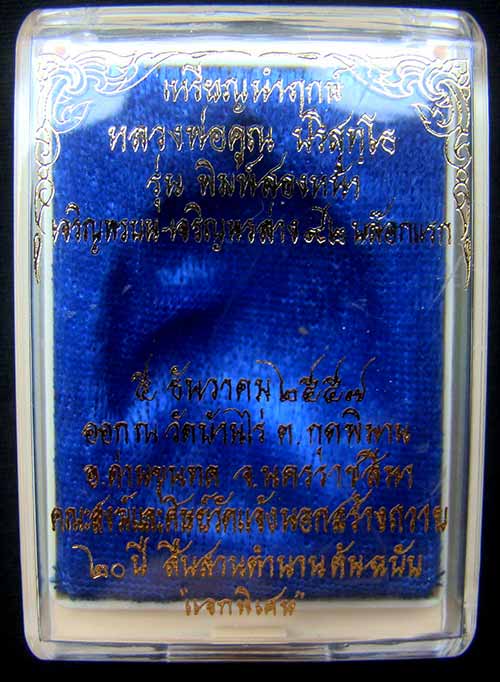 เหรียญนำฤกษ์
หลวงพ่อคูณ ปริสุทฺโธ
รุ่น พิมพ์สองหน้า
เจริญพรบน-เจริญพรล่าง ๙๒ บล๊อกแรก
๕ ธันวาคม ๒๕๕๗
ออก ณ วัดบ้านไร่ ต. กุดพิมาน
อ.ด่านขุนทด จ.นครราชสีมา
คณะสงฆ์และศิษย์วัดแจ้งนอกสร้างถวาย
๒๐ ปี สืบสานตำนาน ต้นฉบับ
"แจกพิเศษ"